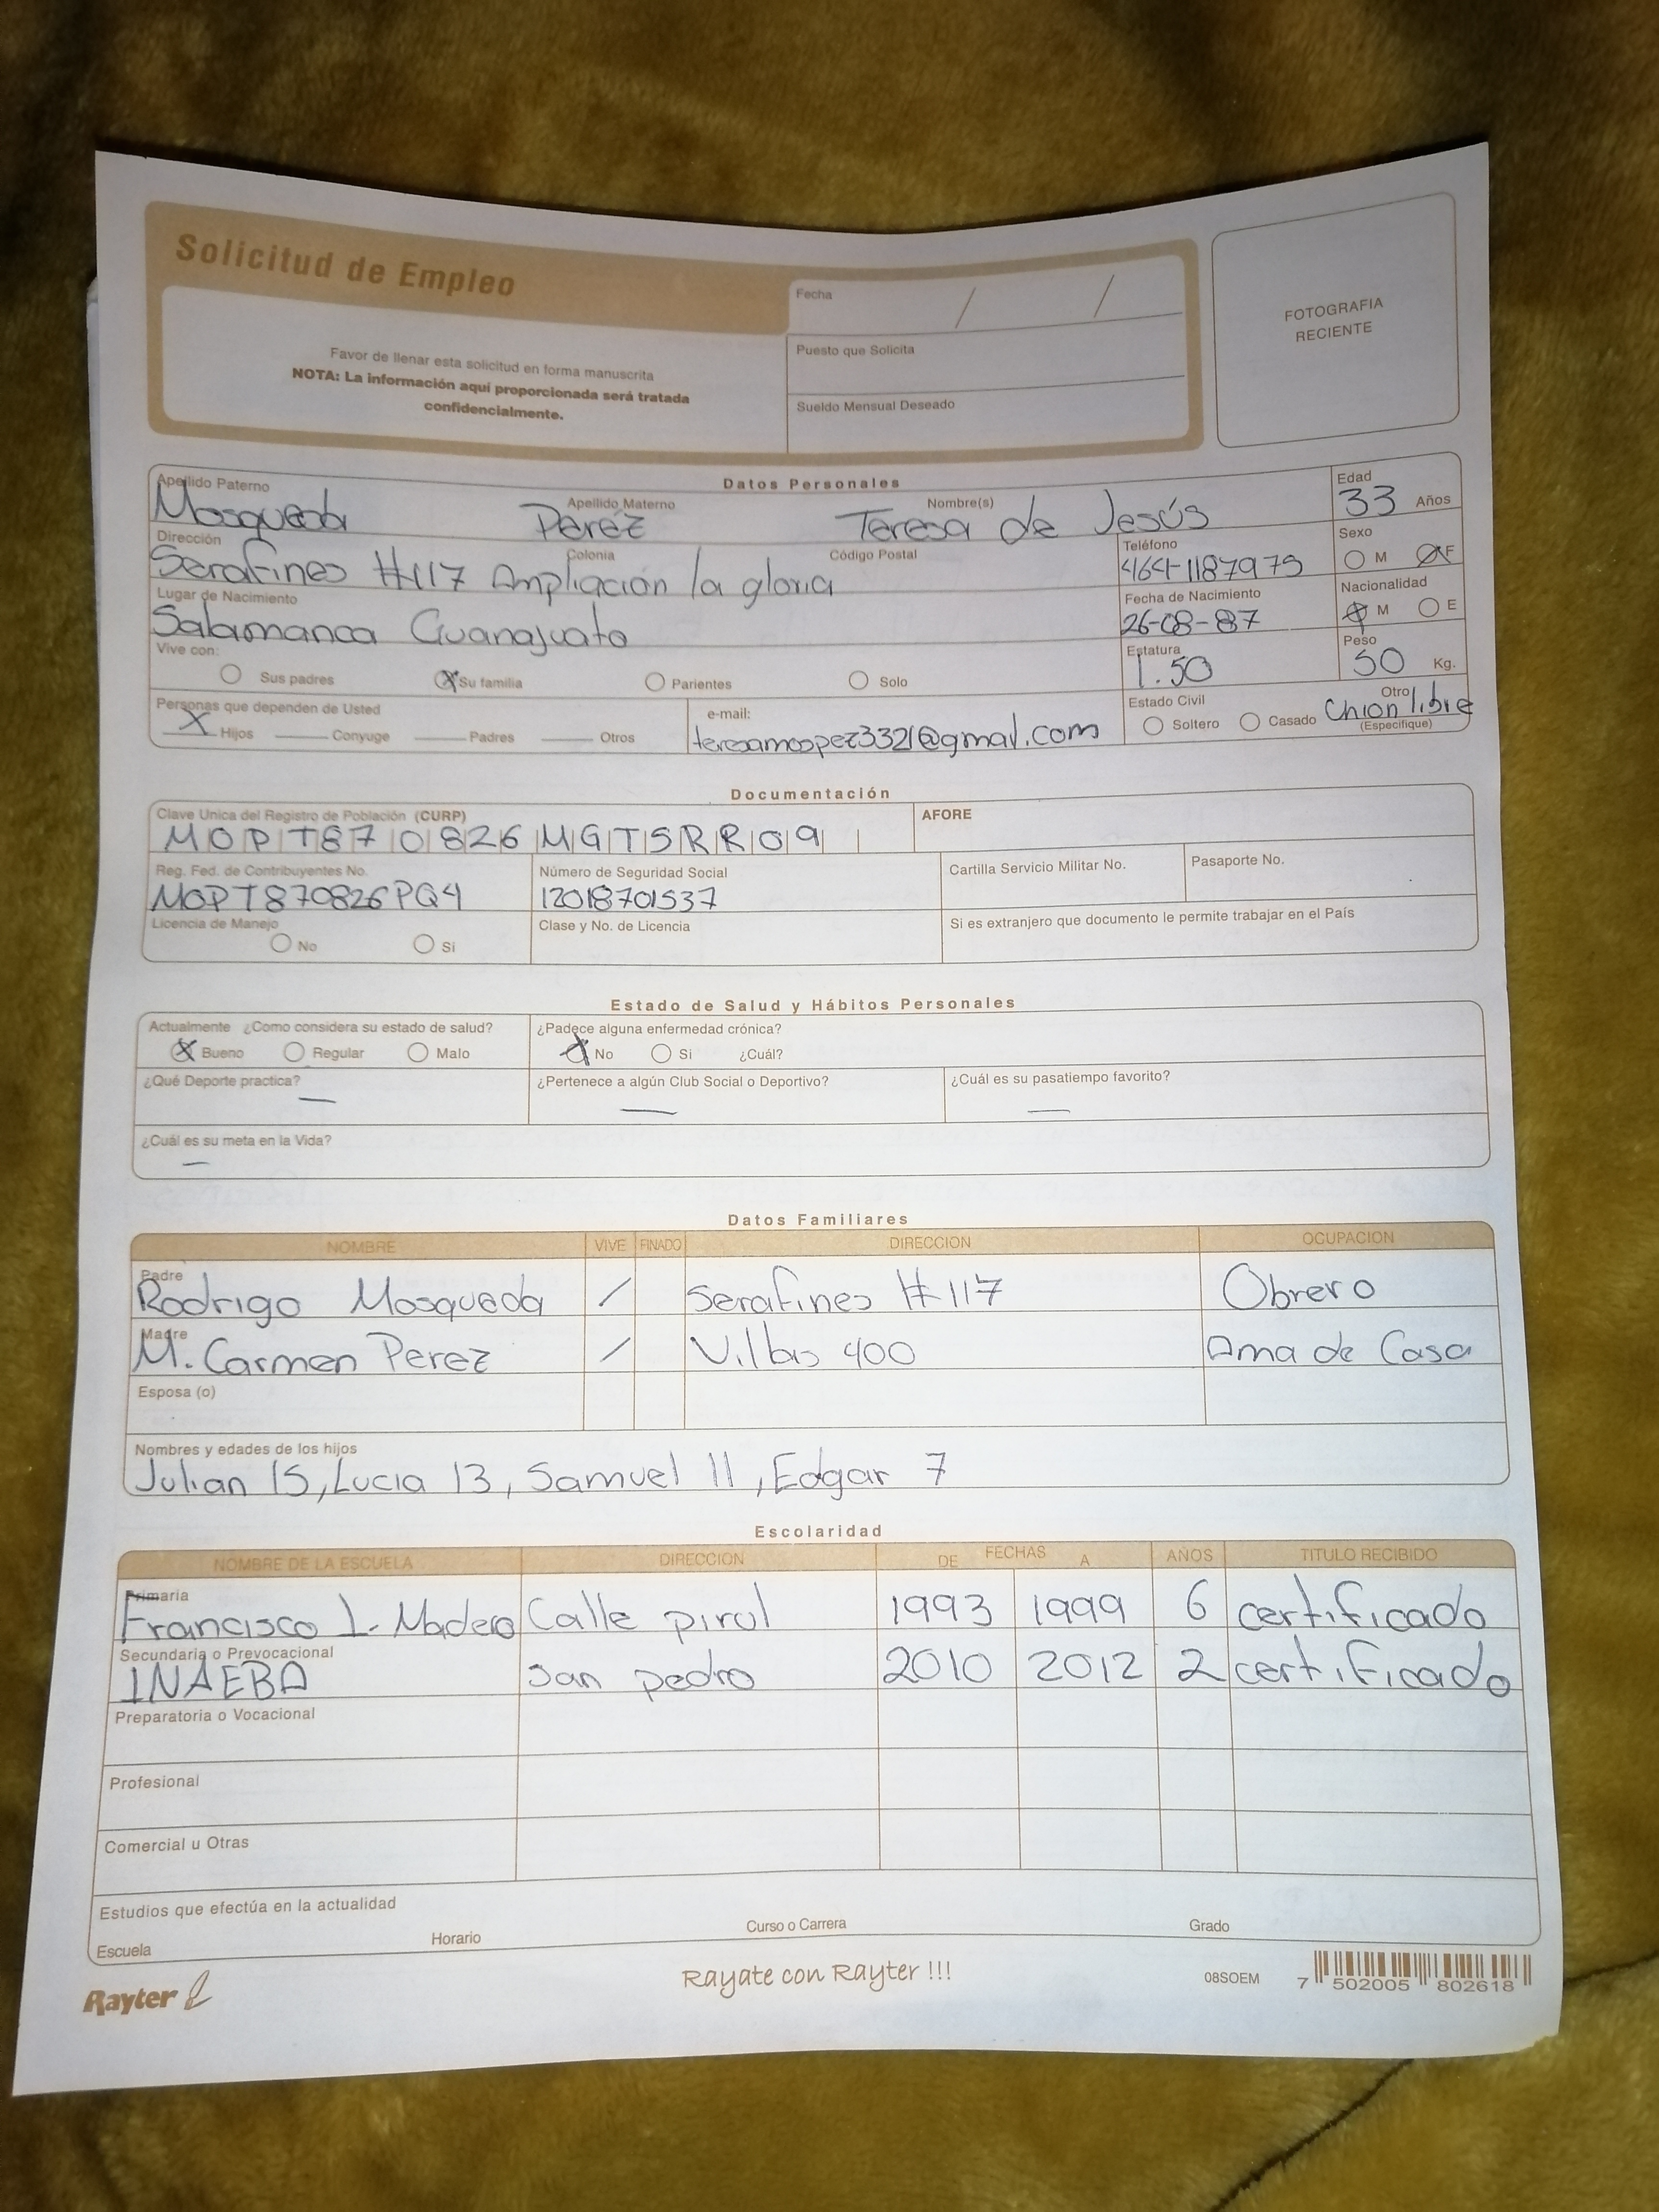 Solicitud de Empleo
Favor de llenar esta solicitud en forma manuscrita
NOTA: La información aquí proporcionada será tratada
confidencialmente.
Fecha / /
Puesto que Solicita
Sueldo Mensual Deseado
FOTOGRAFIA
RECIENTE
Datos Personales
Apellido Paterno Apellido Materno Nombre(s) Edad
Mosqueda Perez Teresa de Jesús 33 Años
Dirección Colonia Código Postal Teléfono Sexo
Serafines #117 Ampliación la gloria 464-1187975 M F
Lugar de Nacimiento Fecha de Nacimiento Nacionalidad
Salamanca Guanajuato 26-08-87 M E
Vive con: Estatura Peso
Sus padres X Su familia Parientes Solo 1.50 50 Kg.
Personas que dependen de Usted e-mail: Estado Civil Otro
X Hijos Conyuge Padres Otros teresamospez3321@gmail.com Soltero Casado libre (Especifique)
Documentación
Clave Unica del Registro de Población (CURP) AFORE
MOPT870826MGTSRR09
Reg. Fed. de Contribuyentes No. Número de Seguridad Social Cartilla Servicio Militar No. Pasaporte No.
MOPT870826PQ4 12018701537
Licencia de Manejo Clase y No. de Licencia Si es extranjero que documento le permite trabajar en el País
No Si
Estado de Salud y Hábitos Personales
Actualmente ¿Como considera su estado de salud? ¿Padece alguna enfermedad crónica?
X Bueno Regular Malo X No Si ¿Cuál?
¿Qué Deporte practica? ¿Pertenece a algún Club Social o Deportivo? ¿Cuál es su pasatiempo favorito?
— — —
¿Cuál es su meta en la Vida?
—
Datos Familiares
NOMBRE VIVE FINADO DIRECCION OCUPACION
Padre
Rodrigo Mosqueda / Serafines #117 Obrero
Madre
M. Carmen Perez / Villas 400 Ama de Casa
Esposa (o)
Nombres y edades de los hijos
Julian 15, Lucia 13, Samuel 11, Edgar 7
Escolaridad
NOMBRE DE LA ESCUELA DIRECCION FECHAS AÑOS TITULO RECIBIDO
DE A
Primaria
Francisco I. Madero Calle pirul 1993 1999 6 certificado
Secundaria o Prevocacional
INAEBA San pedro 2010 2012 2 certificado
Preparatoria o Vocacional
Profesional
Comercial u Otras
Estudios que efectúa en la actualidad
Escuela Horario Curso o Carrera Grado
Rayter Rayate con Rayter !!! 08SOEM 7 502005 802618